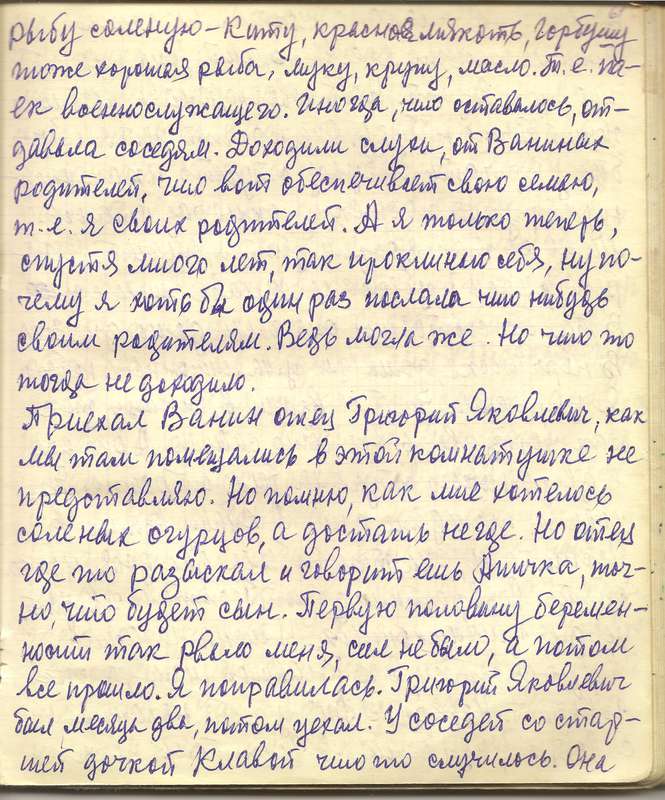 рыбу соленую - Киту, красная мякоть, горбушу
тоже хорошая рыба, муку, крупу, масло. Т.е. па-
ек военнослужащего. Иногда, что оставалось, от-
давала соседям. Доходили слухи, от Ваниных
родителей, что вот обеспечивает свою семью,
т.е. я своих родителей. А я только теперь,
спустя много лет, так проклинаю себя, ну по-
чему я хотя бы один раз послала что нибудь
своим родителям. Ведь могла же. Но что то
тогда не доходило.
Приехал Ванин отец Григорий Яковлевич, как
мы там помещались в этой комнатушке не
представляю. Но помню, как мне хотелось
соленых огурцов, а достать негде. Но отец
где то разыскал и говорит ешь Аничка, точ-
но, что будет сын. Первую половину беремен-
ности так рвало меня, сил не было, а потом
все прошло. Я поправилась. Григорий Яковлевич
был месяца два, потом уехал. У соседей со стар-
шей дочкой Клавой что то случилось. Она